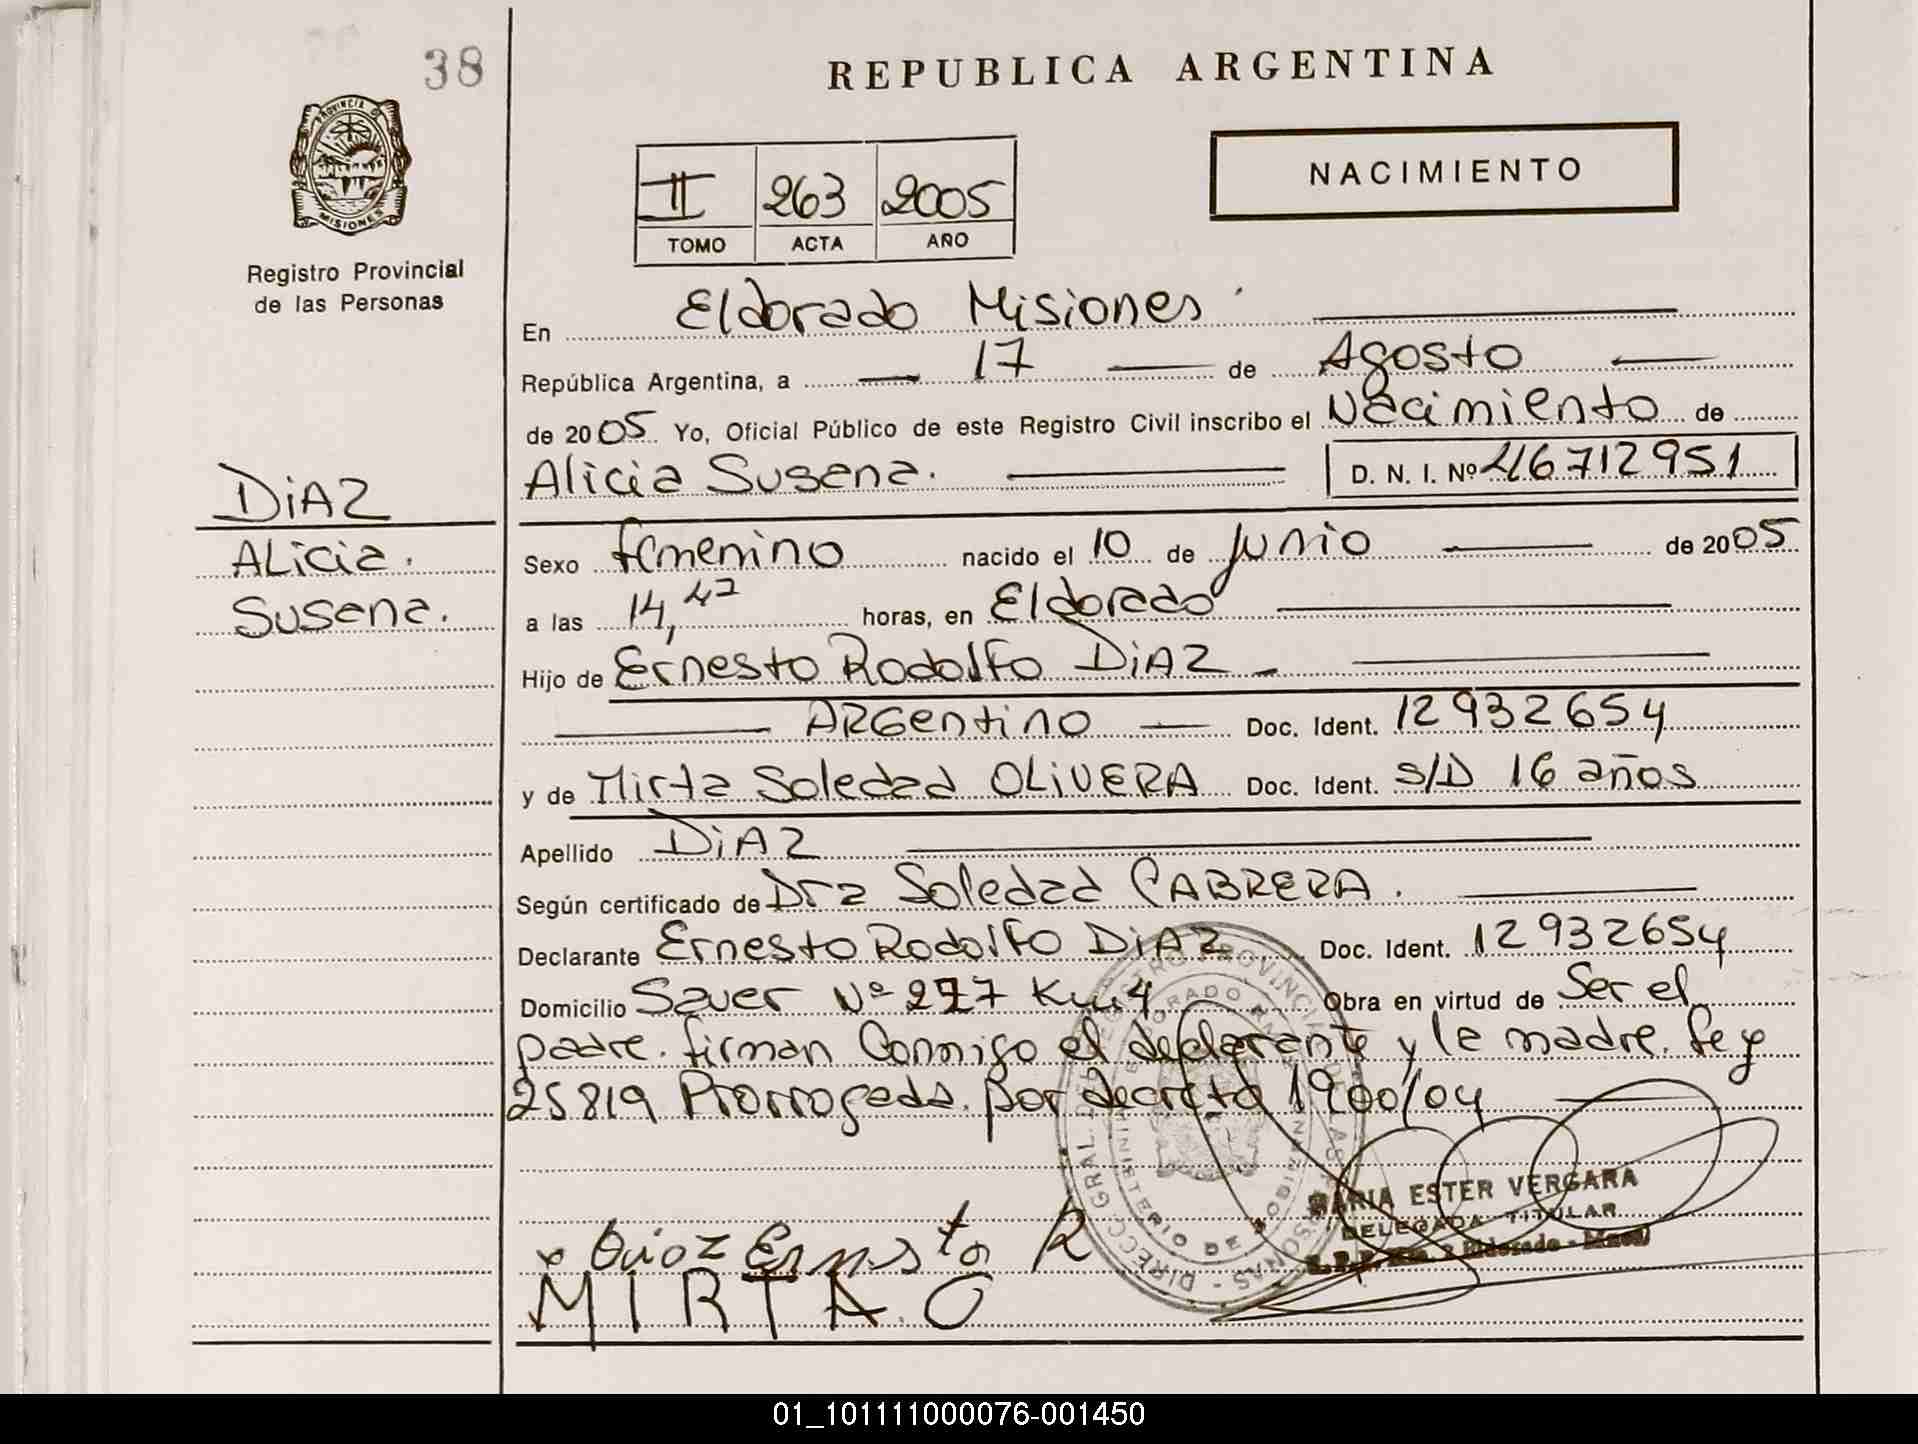 38
REPUBLICA ARGENTINA
PROVINCIA DE
MISIONES
Registro Provincial
de las Personas
NACIMIENTO
II 263 2005
TOMO ACTA AÑO
En Eldorado Misiones
República Argentina, a 17 de Agosto
de 2005 Yo, Oficial Público de este Registro Civil inscribo el Nacimiento de
Alicia Susana. D. N. I. Nº 46712951
DIAZ
Alicia.
Susana.
Sexo femenino nacido el 10 de Junio de 2005
a las 14,47 horas, en Eldorado
Hijo de Ernesto Rodolfo DIAZ
ARGentino Doc. Ident. 12932654
y de Mirta Soledad OLIVERA Doc. Ident. S/D 16 años
Apellido DIAZ
Según certificado de Dra Soledad CABRERA.
Declarante Ernesto Rodolfo DIAZ Doc. Ident. 12932654
Domicilio Sauer Nº 277 Km 4 Obra en virtud de Ser el
padre. firman Conmigo el declarante y la madre. Ley
25819 Prorrogada. por decreto 1900/04
MARIA ESTER VERGARA
DELEGADA TITULAR
x Diaz Ernesto R
MIRTA.O
01_101111000076-001450